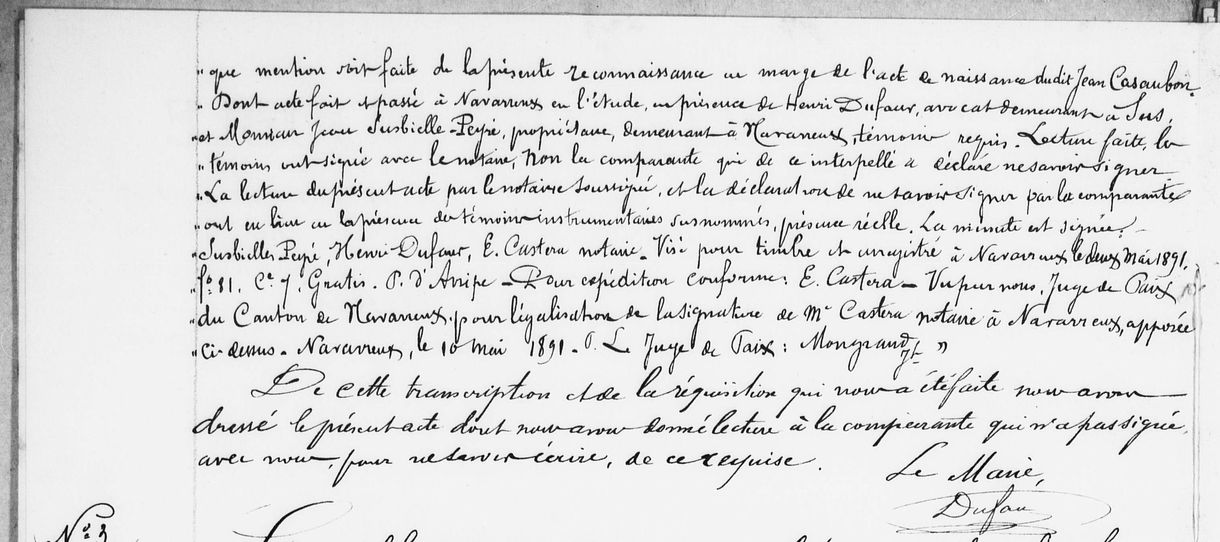 " que mention soit faite de la présente reconnaissance en marge de l'acte de naissance dudit Jean Casaubon.
" Dont acte fait et passé à Navarrenx en l'étude, en présence de Henri Dufaur, avocat demeurant à Sus,
" et Monsieur Jean Susbielle-Peyré, propriétaire, demeurant à Navarrenx, témoins requis. Lecture faite, les
" témoins ont signé avec le notaire, non la comparante qui de ce interpellé a déclaré ne savoir signer
" La lecture du présent acte par le notaire soussigné, et la déclaration de ne savoir signer par la comparante
" ont eu lieu en la présence des témoins instrumentaires susnommés, présence réelle. La minute est signée.
" Susbielles Peyré, Henri Dufaur, E. Castera notaire. Visé pour timbre et enregistré à Navarrenx le deux Mai 1891.
" fo 81. Ce 7. Gratis. P. d'Arripe - Pour expédition conforme: E. Castera - Vu par nous, Juge de Paix
" du Canton de Navarrenx, pour légalisation de la signature de Me Castera notaire à Navarrenx, apposée
" ci-dessus. Navarrenx, le 10 mai 1891. P. Le Juge de Paix: Mongrand
De cette transcription et de la réquisition qui nous a été faite nous avons
dressé le présent acte dont nous avons donné lecture à la comparante qui n'a pas signé,
avec nous, pour ne savoir écrire, de ce requise.
Le Maire,
Dufau
No 3